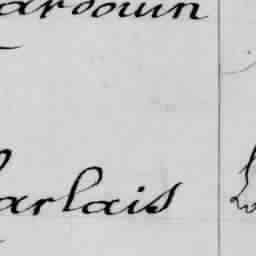 ardouin
arlais